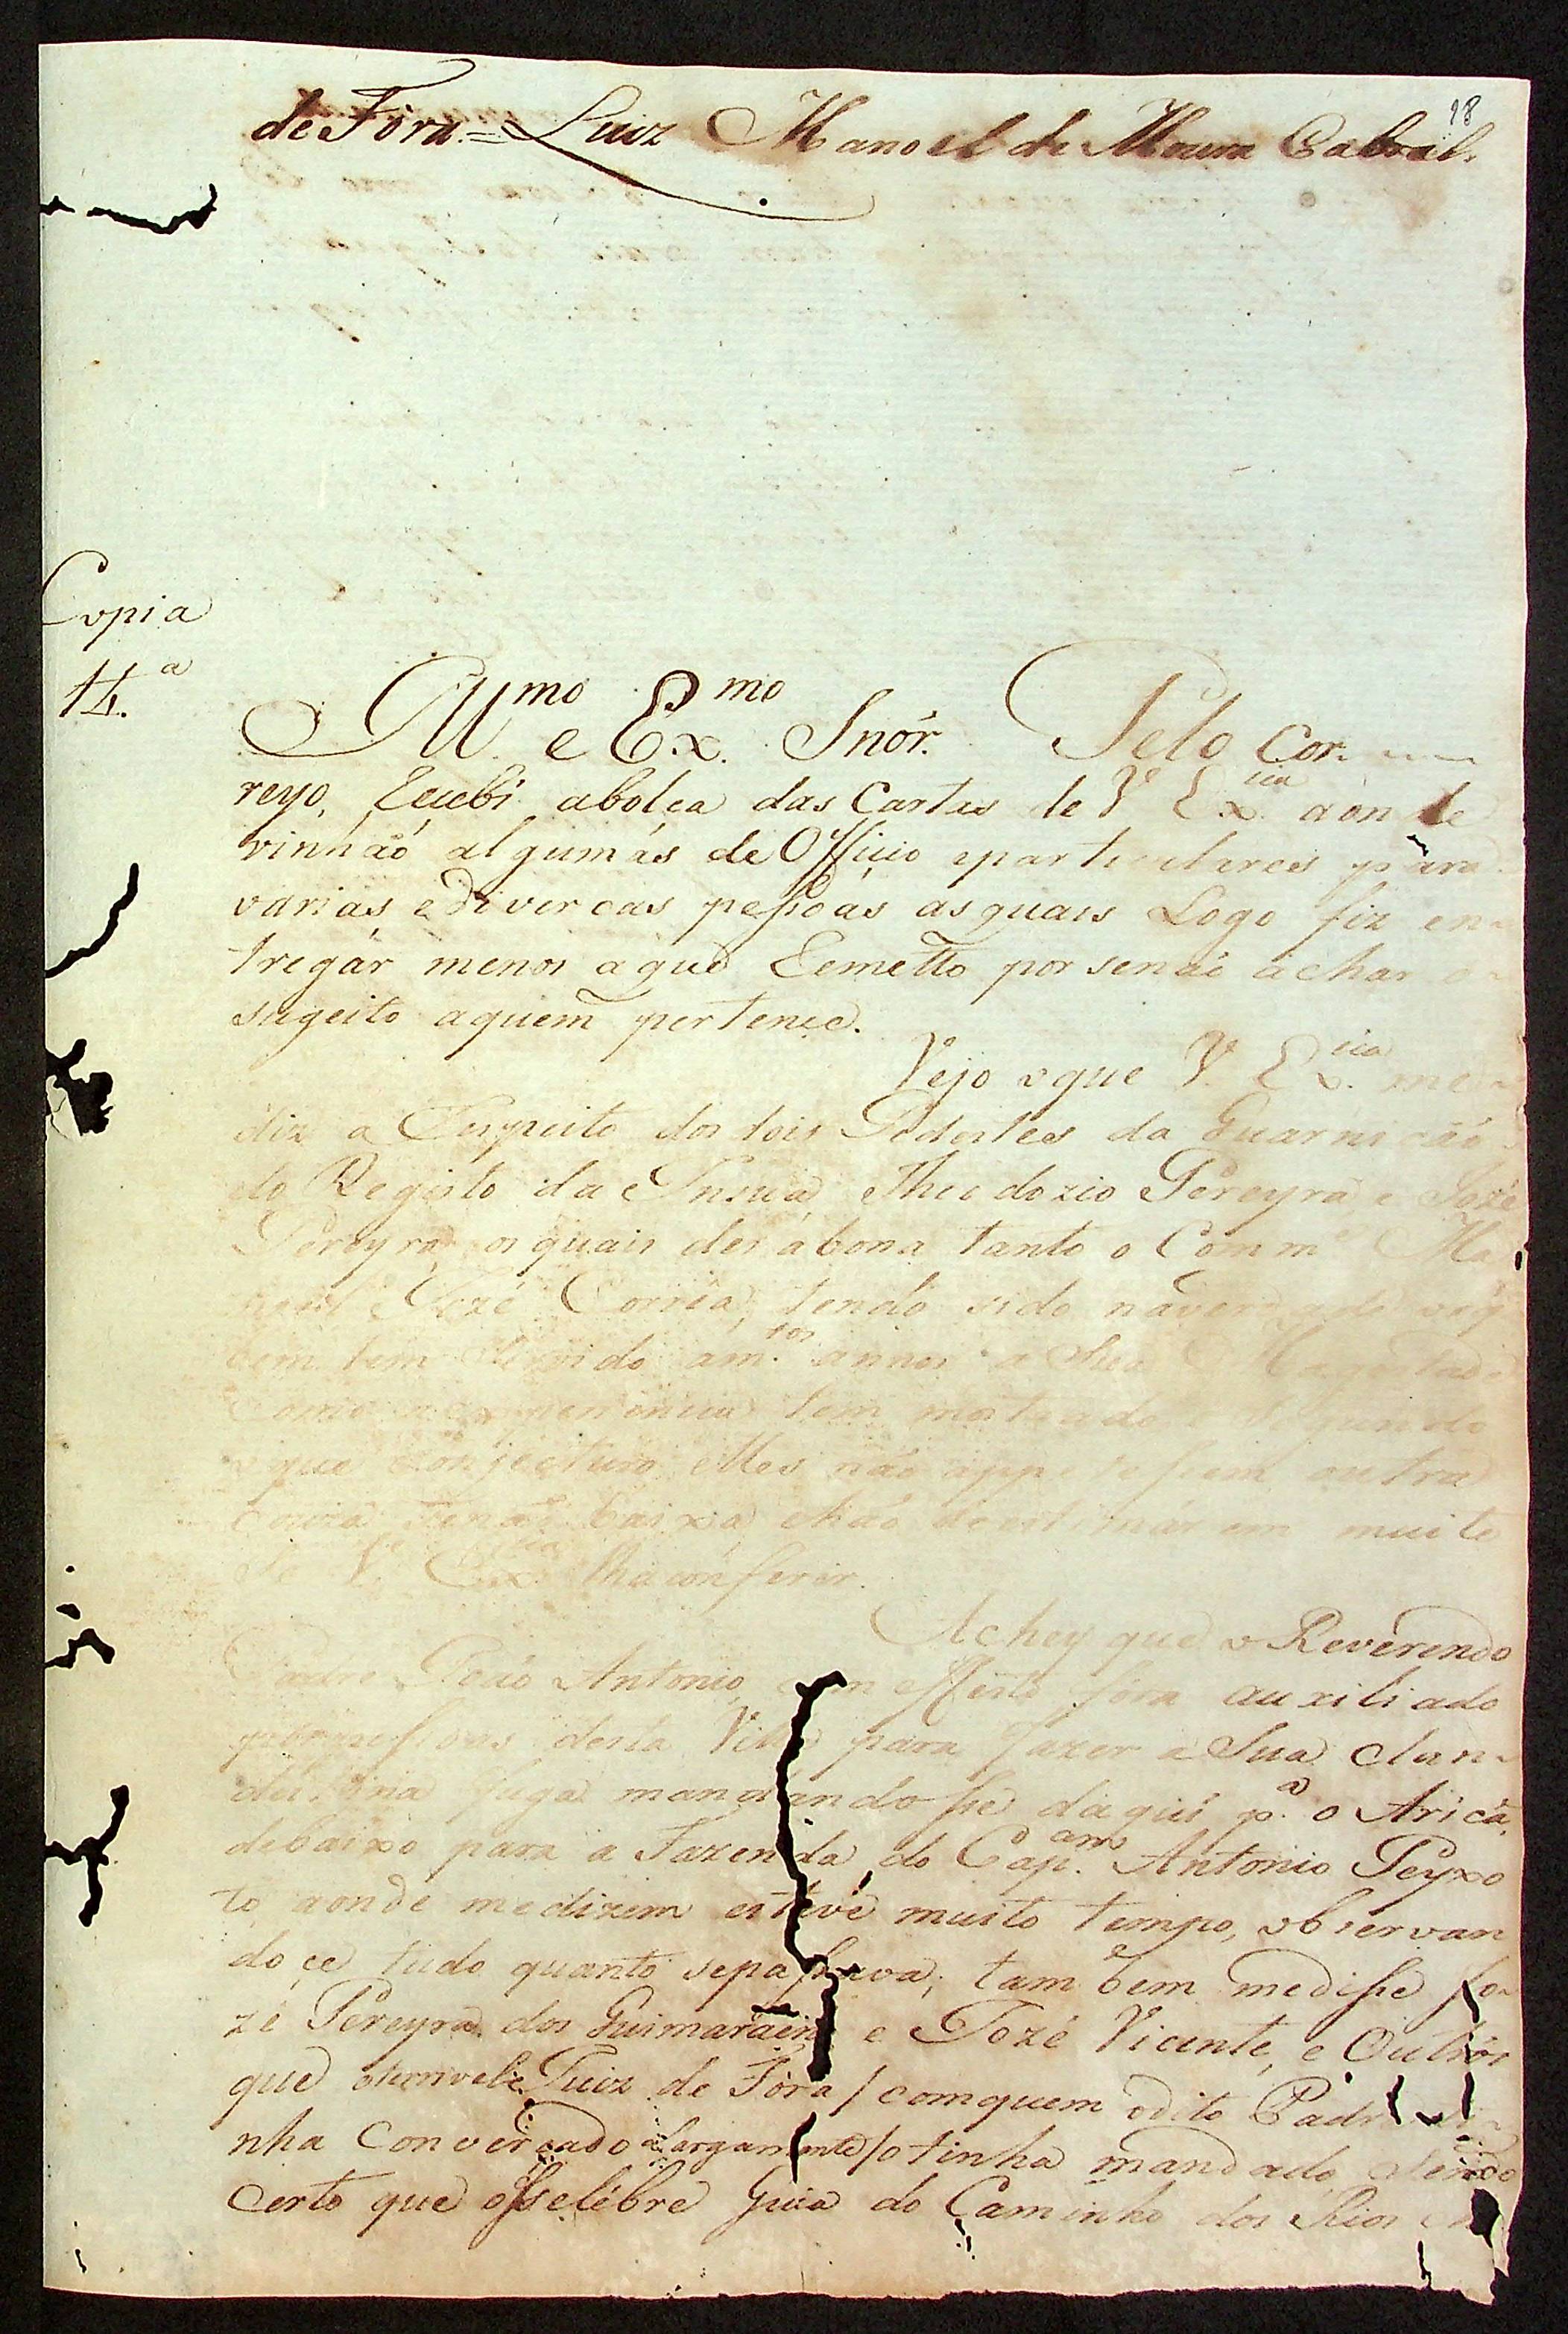 98
de Fóra.= Luiz Manoel de Moura Cabral.
Copia
14.ª
Ill.mo e Ex.mo Snór. Pelo Cor-
reyo, Recebi abolça das Cartas de V Ex.cia aonde
vinháo algumás de Officio eparticulares para
varias, e divercas peſsoás asquais Logo fiz en-
tregár menos aque Remetto por senáo áchar o
sugeito aquem pertence.
Vejo oque V. Ex.cia me
diz a Respeito dos dois Pedestes da Guarnicáo
do Registo da Insua, Theodozio Pereyra e Jozé
Pereyra, os quais des abona tanto o Comm.e Ma
noel Jozé Corrêa, tendo sido naverdade
bem tem servido a m.tos annos a Sua Magestade
como a experiencia tem mostrado e segundo
oque Conjecturo elles náo appeteſsem outra
couza senáo baixa, eháo deestimárem muito
se V. Ex.cia lha conferir.
Achey que o Reverendo
Padre Joáo Antonio, com effeito fóra auxiliado
porpeſsoas desta Villa para fazer a Sua clan-
destina fuga mandandoſse daqui p.ª o Aricá
debaixo para a Fazenda do Cap.am Antonio Peyxo
to, aonde medizem esteve muito tempo, observan
do çe tudo quanto sepaſsava; tam bem mediſse Jo-
zé Pereyra dos Guimaráens e Jozé Vicente, e Outros
que oterrivel Juiz de Fóra / comquem odito Padre ti-
nha Convercado Largamente / o tinha mandado, sendo
Certo que oſselébre Guia do Caminho dos Rios